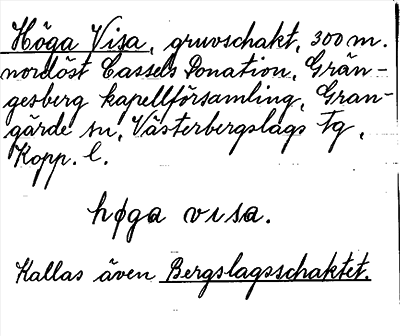 Höga Visa, gruvschakt, 300 m.
nordöst Cassels Donation, Grän-
gesberg kapellförsamling, Gran-
gärde sn, Västerbergslags Tg,
Kopp. l.
høga visa.
Kallas även Bergslagsschaktet.